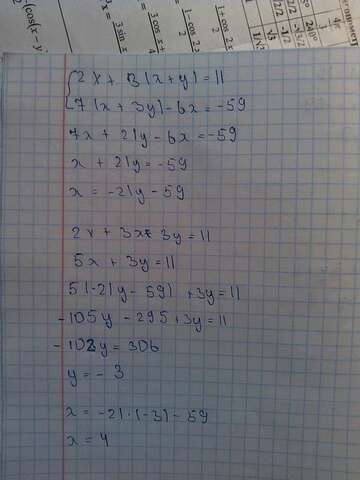 2x + 3(x+y) = 11
7(x + 3y) - 6x = -59
7x + 21y - 6x = -59
x + 21y = -59
x = -21y - 59
2x + 3x + 3y = 11
5x + 3y = 11
5(-21y - 59) + 3y = 11
-105y - 295 + 3y = 11
-102y = 306
y = -3
x = -21·(-3) - 59
x = 4